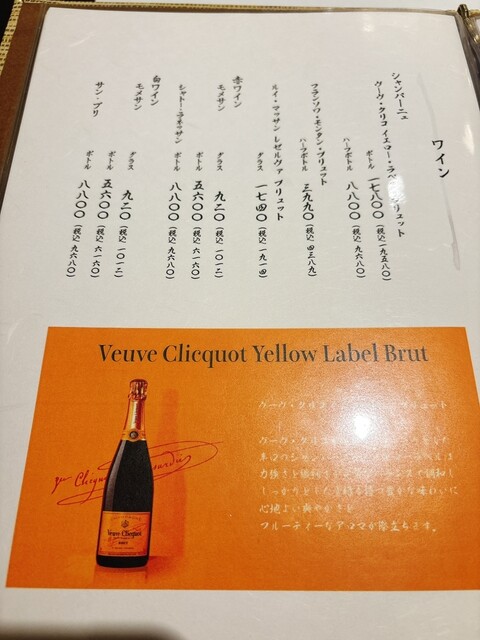 ワイン
シャンパーニュ
ヴーヴ・クリコ イエロー・ラベル ブリュット
ボトル 一七八〇〇（税込 一九五八〇）
ハーフボトル 八八〇〇（税込 九六八〇）
フランソワ・モンタン・ブリュット
ハーフボトル 三九九〇（税込 四三八九）
ルイ・マッサン レゼルヴァ ブリュット
グラス 一七四〇（税込 一九一四）
赤ワイン
モメサン
グラス 九二〇（税込 一〇一二）
ボトル 五六〇〇（税込 六一六〇）
シャトー・
ボトル 八八〇〇（税込 九六八〇）
白ワイン
モメサン
グラス 九二〇（税込 一〇一二）
ボトル 五六〇〇（税込 六一六〇）
サン・ブリ
ボトル 八八〇〇（税込 九六八〇）
Veuve Clicquot Yellow Label Brut
ヴーヴ・クリ ブリュット
ヴーヴ・クリ
力強さと
しっかりとした 豊かな味わいに
心地よい爽やかさと
フルーティーなアロマが際立ちます。
Veuve Clicquot
BRUT